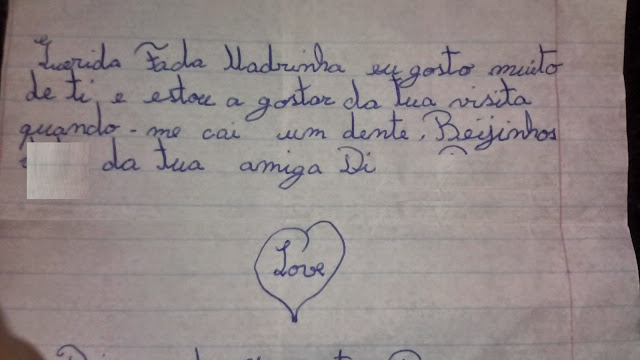 Querida Fada Madrinha eu gosto muito
de ti, e estou a gostar da tua visita
quando-me cai um dente. Beijinhos
da tua amiga Di
Love